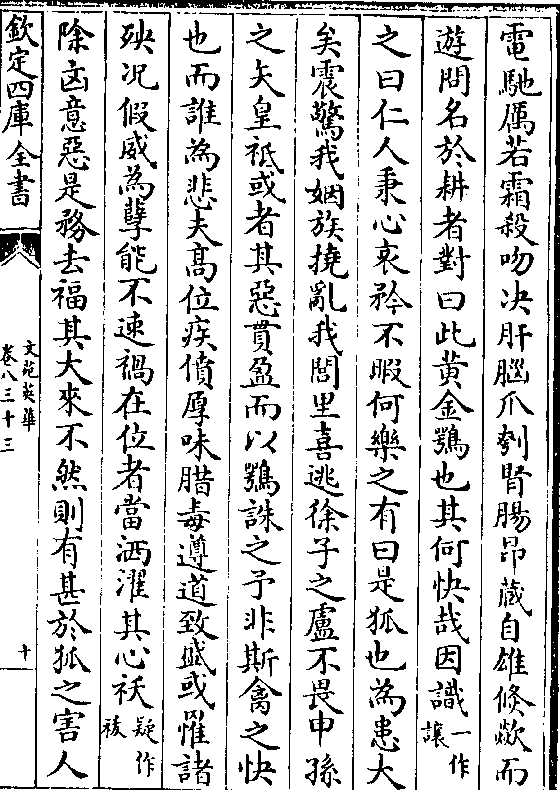 電馳厲若霜殺吻決肝腦爪刳腎腸昂藏自雄倏歘而
遊問名於耕者對曰此黄金鶚也其何快哉因識一作讓
之曰仁人秉心哀矜不暇何樂之有曰是狐也為患大
矣震驚我姻族撓亂我閭里喜逃徐子之盧不畏申孫
之矢皇祗或者其惡貫盈而以鶚誅之予非斯禽之快
也而誰為悲夫髙位疾僨厚味腊毒遵道致盛或罹諸
殃况假威為孽能不速禍在位者當洒濯其心祅疑作祓
除凶意惡是務去福其大來不然則有甚於狐之害人
欽定四庫全書
文苑英華
卷八三十三
十